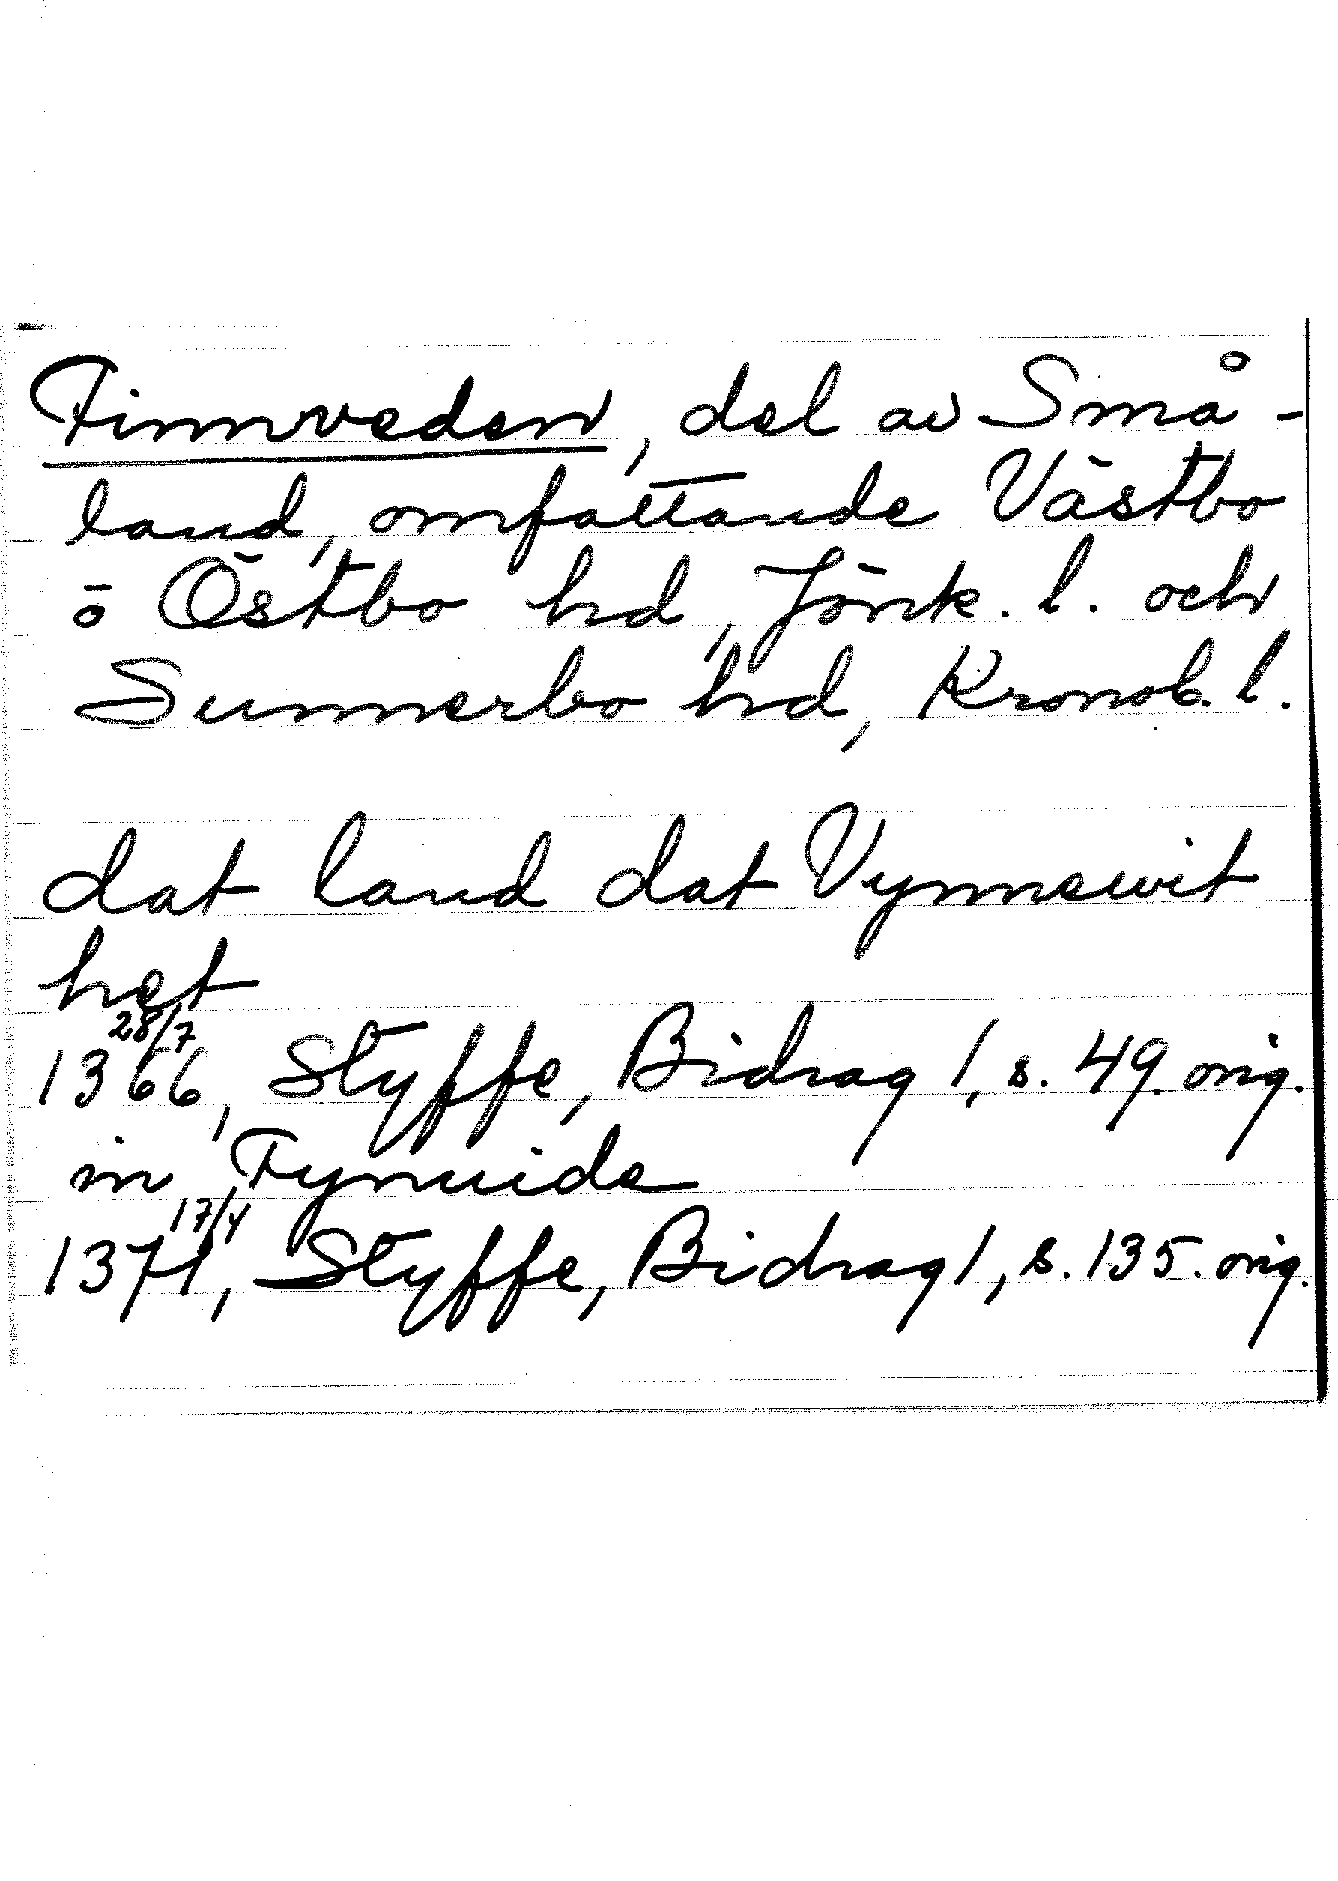 Finnveden, del av Små-
land, omfattande Västbo
o Östbo hd, Jönk. l. och
Sunnerbo hd, Kronob. l.
dat land dat Vynnewit
het
28/7
1366, Styffe, Bidrag 1, s. 49. orig.
in Fynuide
17/4
1371, Styffe, Bidrag 1, s. 135. orig.